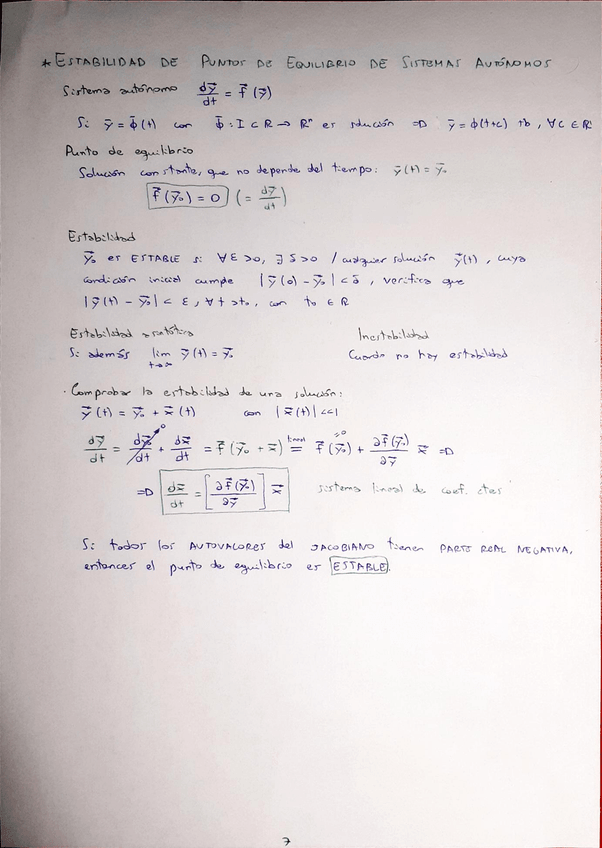 * ESTABILIDAD DE PUNTOS DE EQUILIBRIO DE SISTEMAS AUTÓNOMOS
Sistema autónomo dȳ/dt = f̄(ȳ)
Si ȳ = Φ̄(t) con Φ̄ : I ⊂ R → Rⁿ es solución => ȳ = ϕ(t+c) tb, ∀c ∈ R
Punto de equilibrio
Solución constante, que no depende del tiempo: ȳ(t) = ȳ₀
f̄(ȳ₀) = 0 (= dȳ/dt)
Estabilidad
ȳ₀ es ESTABLE si ∀ε>0, ∃ δ>0 / cualquier solución ȳ(t), cuya
condición inicial cumple |ȳ(0) - ȳ₀| < δ, verifica que
|ȳ(t) - ȳ₀| < ε, ∀t > t₀, con t₀ ∈ R
Estabilidad asintótica Inestabilidad
Si además lim t→∞ ȳ(t) = ȳ₀ Cuando no hay estabilidad
· Comprobar la estabilidad de una solución:
ȳ(t) = ȳ₀ + x̄(t) con |x̄(t)| <<1
dȳ/dt = dȳ₀/dt →0 + dx̄/dt = f̄(ȳ₀ + x̄) =(lineal) f̄(ȳ₀) (=0) + ∂f̄(ȳ₀)/∂ȳ x̄ =>
=> dx̄/dt = [∂f̄(ȳ₀)/∂ȳ] x̄ sistema lineal de coef. ctes
Si todos los AUTOVALORES del JACOBIANO tienen PARTE REAL NEGATIVA,
entonces el punto de equilibrio es ESTABLE.
7